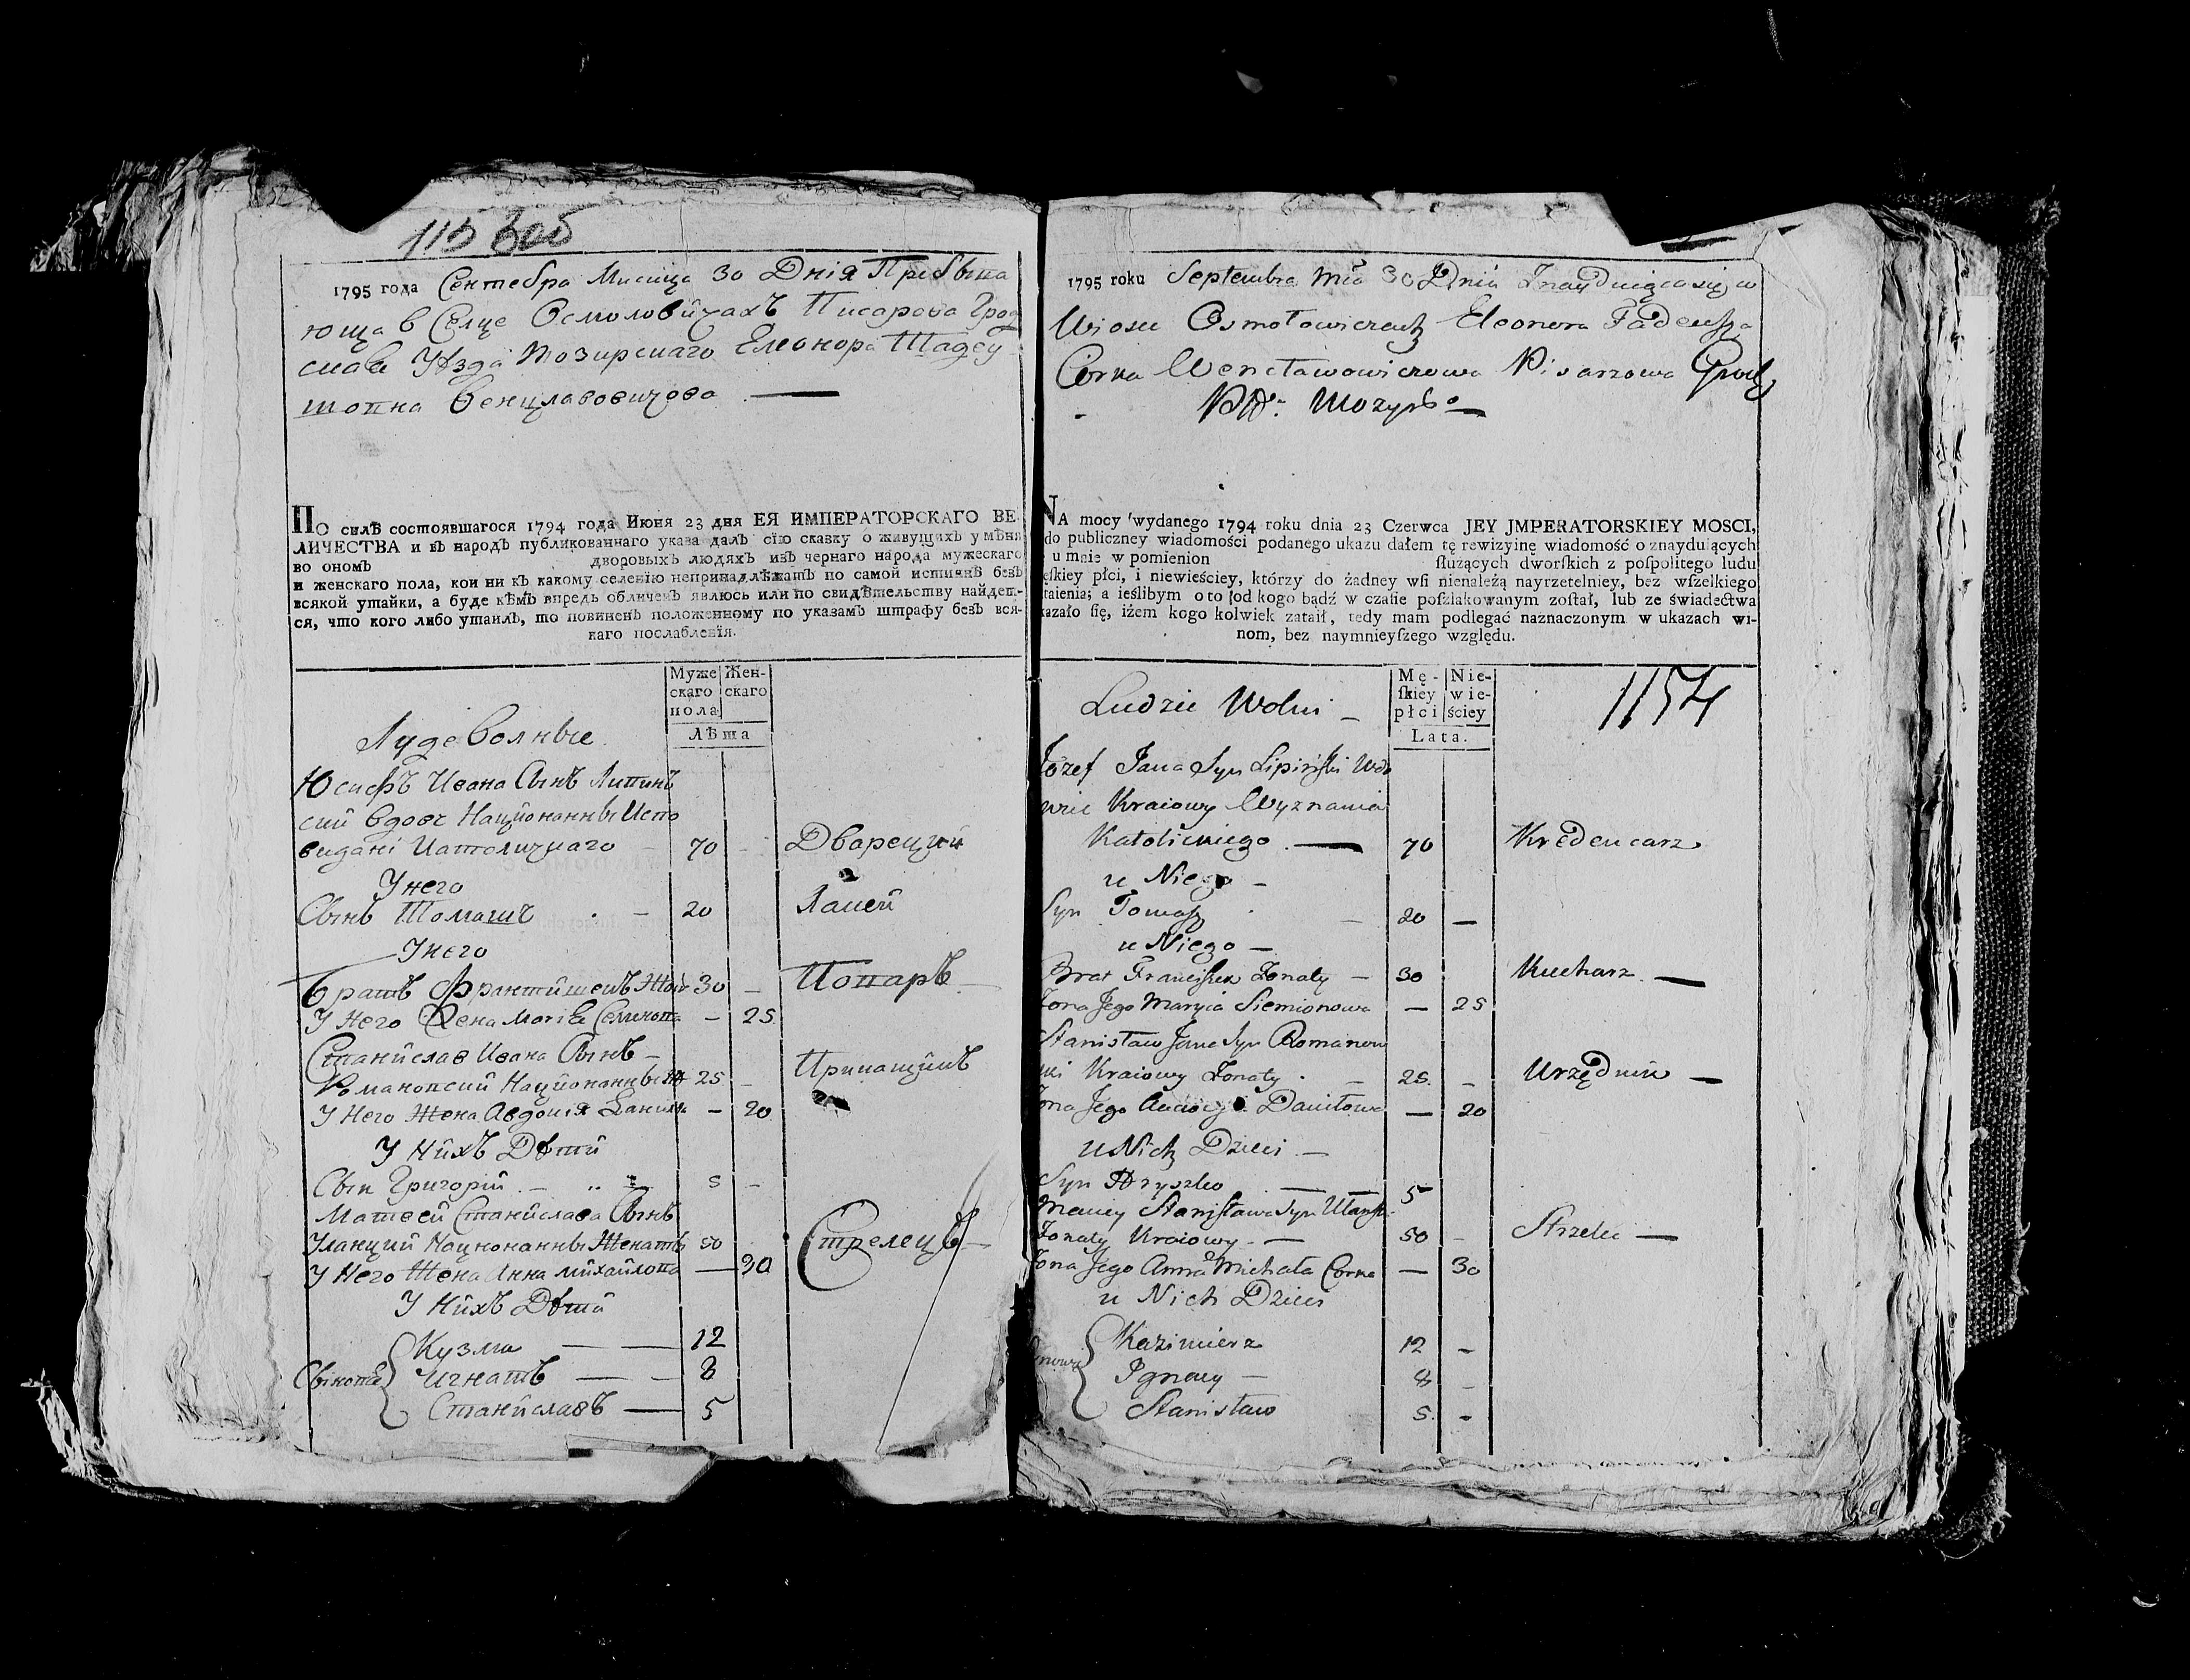 1795 года Сентебра Мисица 30 Дніа Пребыва
юща в Селце Осмоловичахъ Писарова Грод
скаа Уѣзда Мозирскаго Елеонора Шадеу
шовна Венцлавовичова
По силѣ состоявшагося 1794 года Июня 23 дня ЕЯ ИМПЕРАТОРСКАГО ВЕ-
ЛИЧЕСТВА и въ народъ публикованнаго указа далъ сїю сказку о живущихъ у мѣня
во ономъ дворовыхъ людяхъ изъ чернаго народа мужескаго
и женскаго пола, кои ни къ какому селенїю непринадлѣжатъ по самой истинѣ безъ
всякой утайки, а буде кѣмъ впредь обличенъ явлюсь или по свидѣтельству найдет-
ся, что кого либо утаилъ, то повиненъ положенному по указамъ штрафу безъ вся-
каго послабленїя.
Муже
скаго
пола
Жен-
скаго
Лѣта
Люде Волные
Юсифъ Ивана Сынъ Липинъ
ский вдовъ Национанны Испо
видані Католичнаго 70 - Дворецкий
У него
Сынъ Томашъ - 20 Лакей
У него
Братъ Франтишекъ Жон 30 - Копаръ
У Него Жена Маріа Семиновна - 25
Станислав Ивана Сынъ -
Романовский Национанны Ж 25 - Приказчикъ
У Него Жена Авдокія Данилова - 20
У Нихъ Дѣти
Сын Григорій - 5 -
Матвей Станислава Сынъ
Уланский Национанны Женатъ 50 Стрелецъ
У Него Жена Анна Михайловна - 30
У Нихъ Дѣти
Сыновѣ { Кузма 12
Игнатъ 8
Станиславъ 5
1795 roku Septembra Mca 30 Dnia Znayduięca się w
Wiosce Osmołowiczach Eleonora Tadeusza
Corka Wencławowiczowa Pisarzowa Grodz
Ptu Mozyrgo
NA mocy wydanego 1794 roku dnia 23 Czerwca JEY JMPERATORSKIEY MOSCI,
do publiczney wiadomości podanego ukazu dałem tę rewizyinę wiadomość o znayduiących
u mnie w pomienion służących dworskich z pospolitego ludu
ęskiey płci, i niewieściey, którzy do żadney wsi nienależą nayrzetelniey, bez wszelkiego
taienia; a ieślibym o to od kogo bądź w czasie poszlakowanym został, lub ze świadectwa
kazało się, iżem kogo kolwiek zataił, tedy mam podlegać naznaczonym w ukazach wi-
nom, bez naymnieyszego względu.
Mę-
skiey
płci
Nie-
wie-
ściey
Lata.
1154
Ludzie Wolni -
Jozef Jana Syn Lipiński Wdo
wiec Kraiowy Wyznania
Katolickiego 70 Kredencarz
u Niego -
Syn Tomasz - 20 -
u Niego -
Brat Franciszek Żonaty - 30 Kucharz -
Żona Jego Maryia Siemionowa - 25
Stanisław Jana Syn Romanow
ski Kraiowy Żonaty - 25 - Urzędnik -
Żona Jego Danilowa - 20
u Nich Dzieci -
Syn Hryszko - 5
Maciey Stanisława Syn Ułansk
Żonaty Kraiowy - 50 - Strzelec -
Żona Jego Anna Michała Corka - 30
u Nich Dzieci
Synowie { Kazimierz 12 -
Ignacy - 8 -
Stanisław 5 -